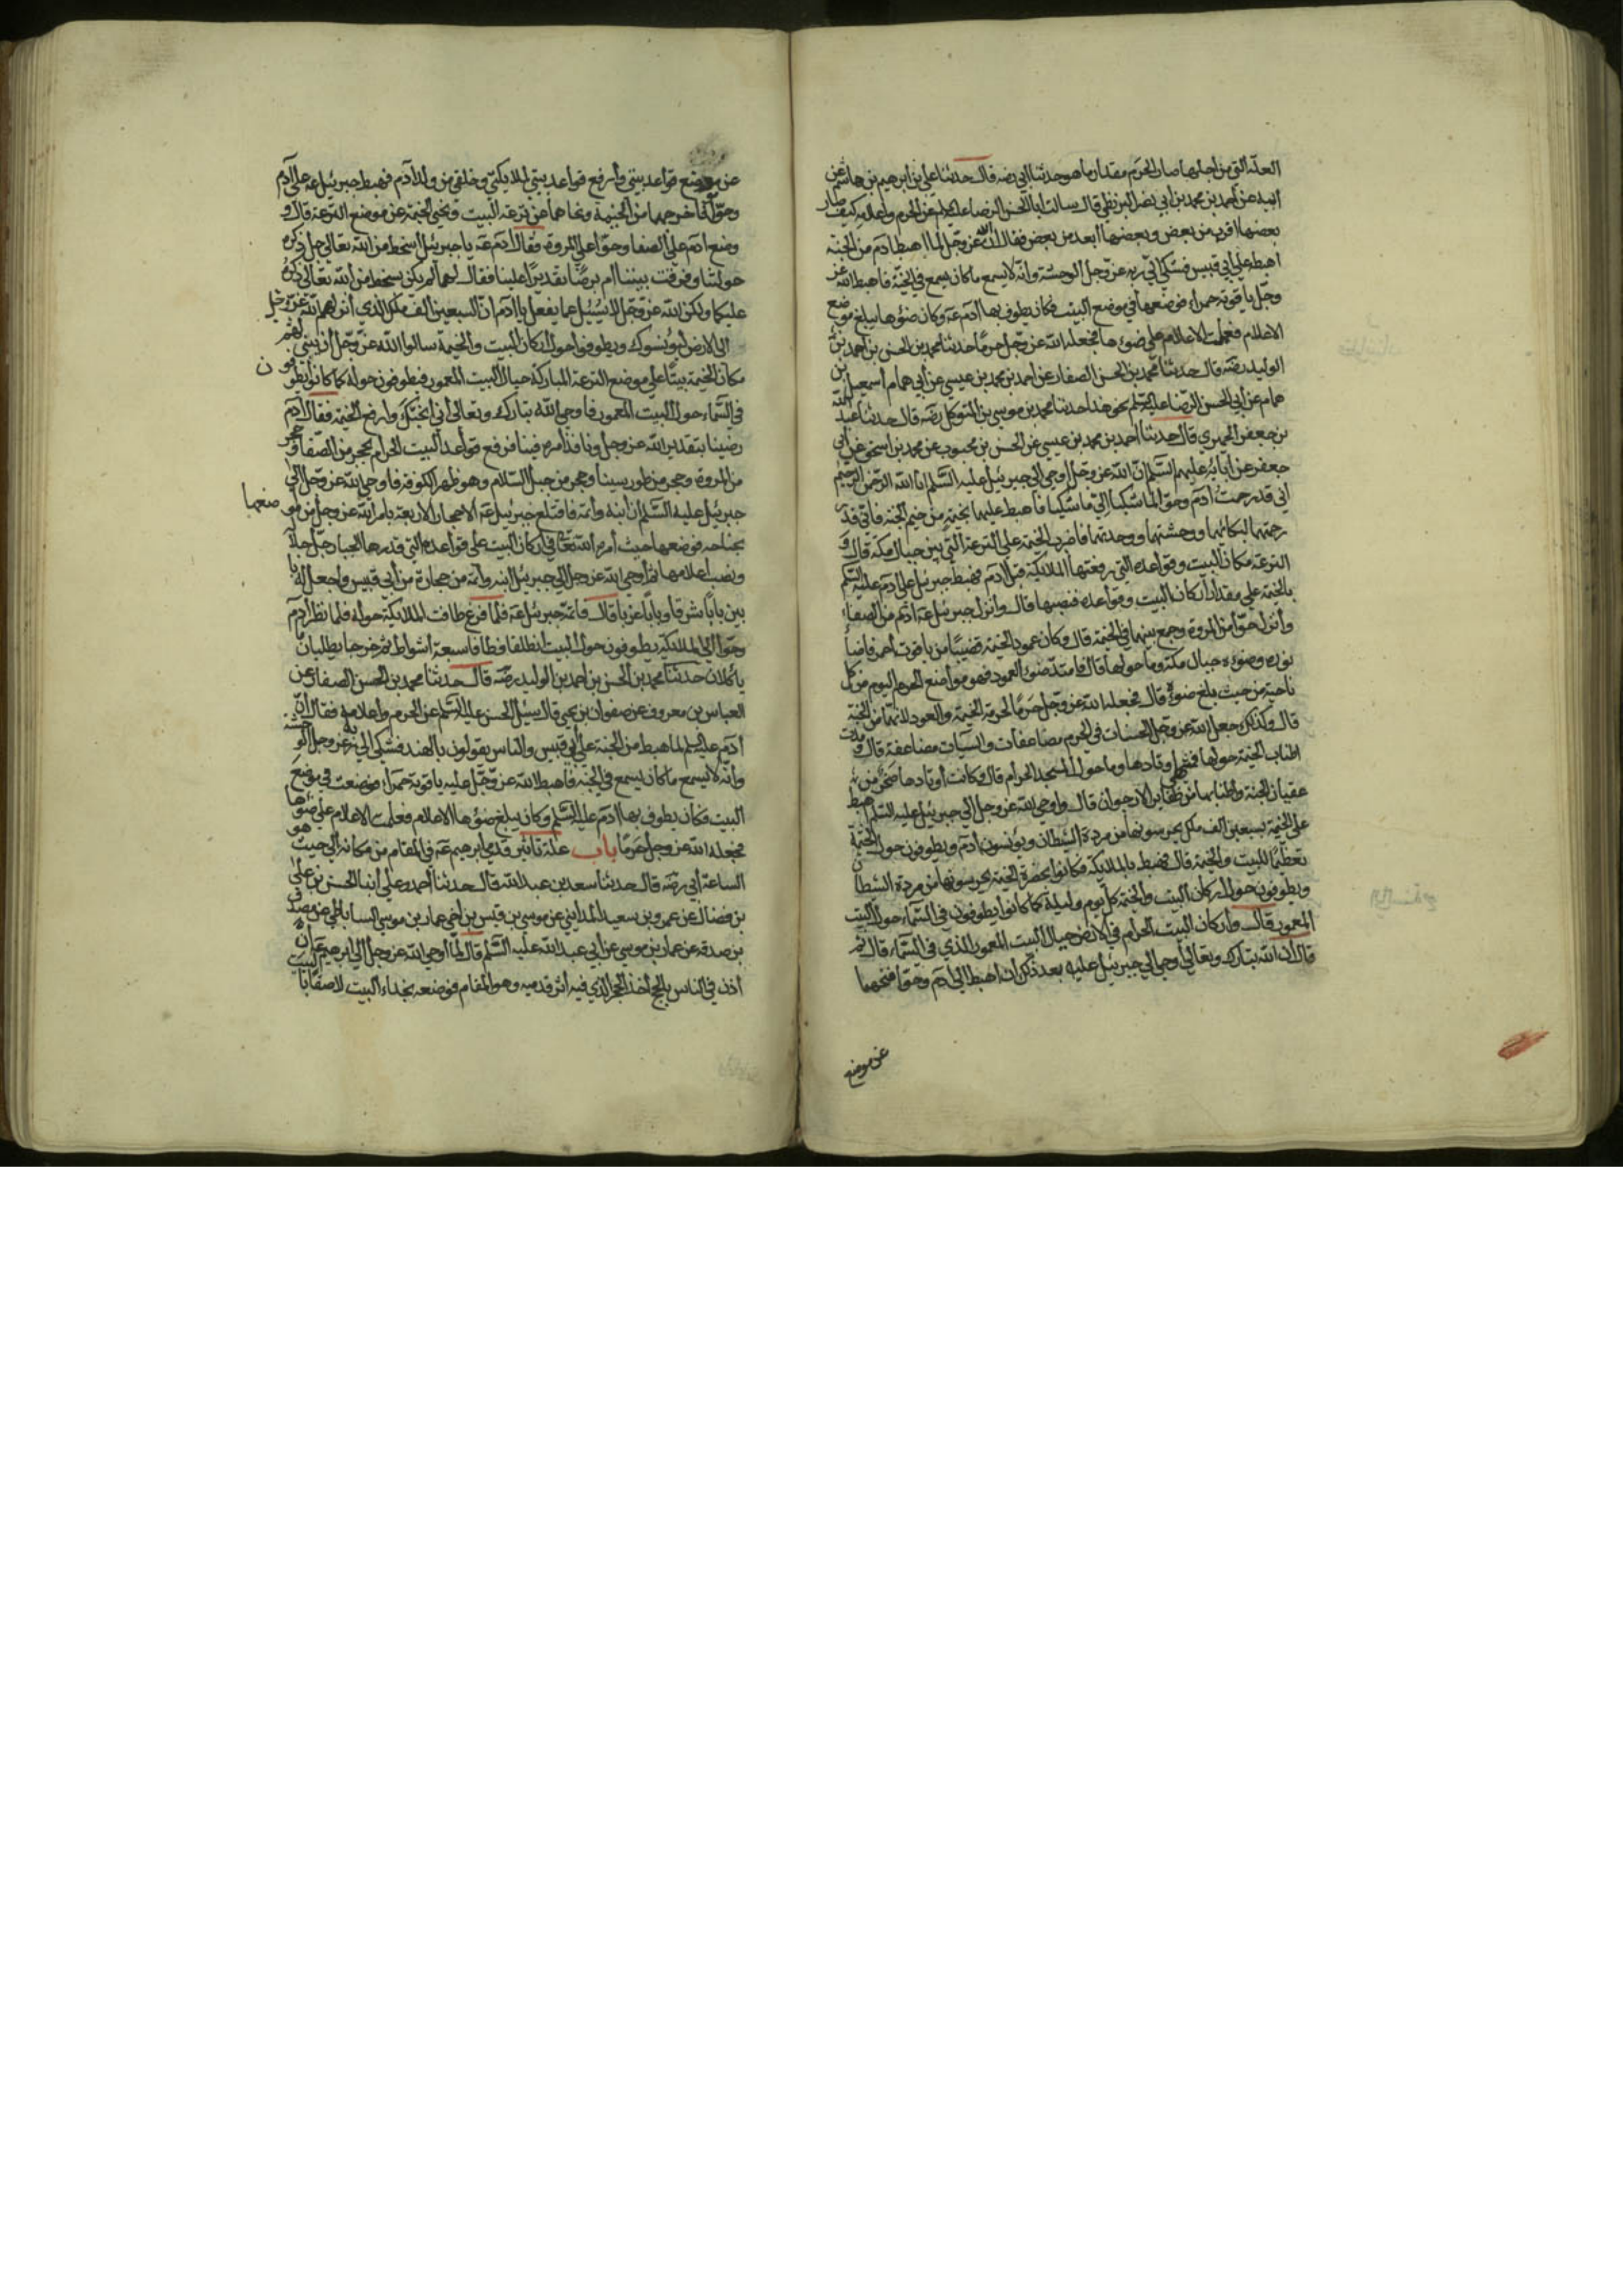 العلّة التي من اجلها صار الحرم مقدار ما هو حدثنا ابي رضه قال حدثنا علي بن ابرهيم بن هاشم عن
ابيه عن احمد بن محمد بن ابي نصر البزنطي قال سالت ابا الحسن الرضا عليه السلم عن الحرم واعلامه كيف صار
بعضها اقرب من بعض وبعضها ابعد من بعض فقال ان الله عز وجل لما اهبط ادم من الجنة
اهبط على ابي قبيس فشكى الى ربه عز وجل الوحشة وانه لا يسمع ما كان يسمع في الجنة فاهبط الله عز
وجل ياقوتة حمراء فوضعها في موضع البيت فكان يطوف بها ادم عه وكان ضوءها يبلغ موضع
الاعلام فعلمت الاعلام على ضوءها فجعله الله عز وجل حرما حدثنا محمد بن الحسن بن احمد بن
الوليد رضه قال حدثنا محمد بن الحسن الصفار عن احمد بن محمد بن عيسى عن ابي همام اسمعيل بن
همام عن ابي الحسن الرضا عليه السلم نحو هذا حدثنا محمد بن موسى بن المتوكل رضه قال حدثنا عبد الله
بن جعفر الحميري قال حدثنا احمد بن محمد بن عيسى عن الحسن بن محبوب عن محمد بن اسحق عن ابي
جعفر عن ابائه عليهم السلم ان الله عز وجل اوحى الى جبرئيل عليه السلم انا الله الرحمن الرحيم
اني قد رحمت ادم وحوا لما شكيا الي ما شكيا فاهبط عليهما بخيمة من خيم الجنة فاني قد
رحمتهما لبكائهما ووحشتهما ووحدتهما فاضرب الخيمة على الترعة التي بين جبال مكة قال و
الترعة مكان البيت وقواعده التي رفعتها الملائكة قبل ادم فهبط جبرئيل على ادم عليه السلم
بالخيمة على مقدار اركان البيت وقواعده فنصبها قال وانزل جبرئيل عه ادم من الصفا
وانزل حوا من المروة وجمع بينهما في الخيمة قال وكان عمود الخيمة قضيبا من ياقوت احمر فاضاء
نوره وضوءه جبال مكة وما حولها قال فامتد ضوء العمود فهو مواضع الحرم اليوم من كل
ناحية من حيث بلغ ضوءه قال فجعله الله عز وجل حرما لحرمة الخيمة والعمود لانهما من الجنة
قال ولذلك جعل الله عز وجل الحسنات في الحرم مضاعفات والسيات مضاعفة قال ومدت
اطناب الخيمة حولها فمنتهى اوتادها ما حول المسجد الحرام قال وكانت اوتادها صخرا من
عقيان الجنة واطنابها من ظفاير الارجوان قال واوحى الله عز وجل الى جبرئيل عليه السلم اهبط
على الخيمة بسبعين الف ملك يحرسونها من مردة الشيطان ويؤنسون ادم ويطوفون حول الخيمة
تعظيما للبيت والخيمة قال فهبط بالملائكة فكانوا بحضرة الخيمة يحرسونها من مردة الشيطان
ويطوفون حول اركان البيت والخيمة كل يوم وليلة كما كانوا يطوفون في السماء حول البيت
المعمور قال واركان البيت الحرام في الارض حيال البيت المعمور الذي في السماء قال ثم
قال ان الله تبارك وتعالى اوحى الى جبرئيل عليه بعد ذلك ان اهبط الى ادم وحوا فنحهما
عن موضع
عن موضع قواعد بيتي وارفع قواعد بيتي لملائكتي وخلقي من ولد ادم فهبط جبرئيل عه على ادم
وحوا فاخرجهما من الخيمة ونحاهما عن ترعة البيت ونحى الخيمة عن موضع الترعة قال و
وضع ادم على الصفا وحوا على المروة فقال ادم عه يا جبرئيل ابسخط من الله تعالى جل ذكره
حولتنا وفرقت بيننا ام برضا تقديرا علينا فقال لهما لم يكن بسخط من الله تعالى ذكره
عليكما ولكن الله عز وجل لا يسئل عما يفعل يا ادم ان السبعين الف ملك الذي انزلهم الله عز وجل
الى الارض ليؤنسوك ويطوفوا حول اركان البيت والخيمة سالوا الله عز وجل ان يبني لهم
مكان الخيمة بيتا على موضع الترعة المباركة حيال البيت المعمور فيطوفون حوله كما كانوا يطوفون
في السماء حول البيت المعمور فاوحى الله تبارك وتعالى الي ان انحيك وارفع الخيمة فقال ادم
رضينا بتقدير الله عز وجل ونافذ امره فينا فرفع قواعد البيت الحرام بحجر من الصفا وحجر
من المروة وحجر من طور سينا وحجر من جبل السلام وهو ظهر الكوفة فاوحى الله عز وجل الى
جبرئيل عليه السلم ان ابنه واتمه فاقتلع جبرئيل عه الاحجار الاربعة بامر الله عز وجل من مواضعها
بجناحه فوضعها حيث امره الله تعالى في اركان البيت على قواعده التي قدرها الجبار جل جلاله
ونصب اعلامها ثم اوحى الله عز وجل الى جبرئيل ابنه واتمه من حجارة من ابي قبيس واجعل له با
بين بابا شرقا وبابا غربا قال فاتمه جبرئيل عه فلما فرغ طافت الملائكة حوله فلما نظر ادم
وحوا الى الملائكة يطوفون حول البيت انطلقا فطافا سبعة اشواط ثم خرجا يطلبان ما
ياكلان حدثنا محمد بن الحسن بن احمد بن الوليد رضه قال حدثنا محمد بن الحسن الصفار عن
العباس بن معروف عن صفوان بن يحيى قال سئل الحسن عليه السلم عن الحرم واعلامه فقال ان
ادم عليه السلم لما هبط من الجنة على ابي قبيس والناس يقولون بالهند فشكى الى ربه عز وجل الوحشة
وانه لا يسمع ما كان يسمع في الجنة فاهبط الله عز وجل عليه ياقوتة حمراء فوضعت في موضع
البيت فكان يطوف بها ادم عليه السلم وكان يبلغ ضوءها الاعلام فعلمت الاعلام على ضوءها
فجعله الله عز وجل حرما باب علة تاثير قدمي ابرهيم عه في المقام من مكانه الى حيث هو
الساعة ابي رضه قال حدثنا سعد بن عبد الله قال حدثنا احمد وعلي ابنا الحسن بن علي
بن فضال عن عمرو بن سعيد المدايني عن موسى بن قيس بن اخي عمار بن موسى الساباطي عن مصدق
بن صدقه عن عمار بن موسى عن ابي عبد الله عليه السلم قال لما اوحى الله عز وجل الى ابرهيم عه ان
اذن في الناس بالحج اخذ الحجر الذي فيه اثر قدميه وهو المقام فوضعه بحذاء البيت لاصقا بالبيت